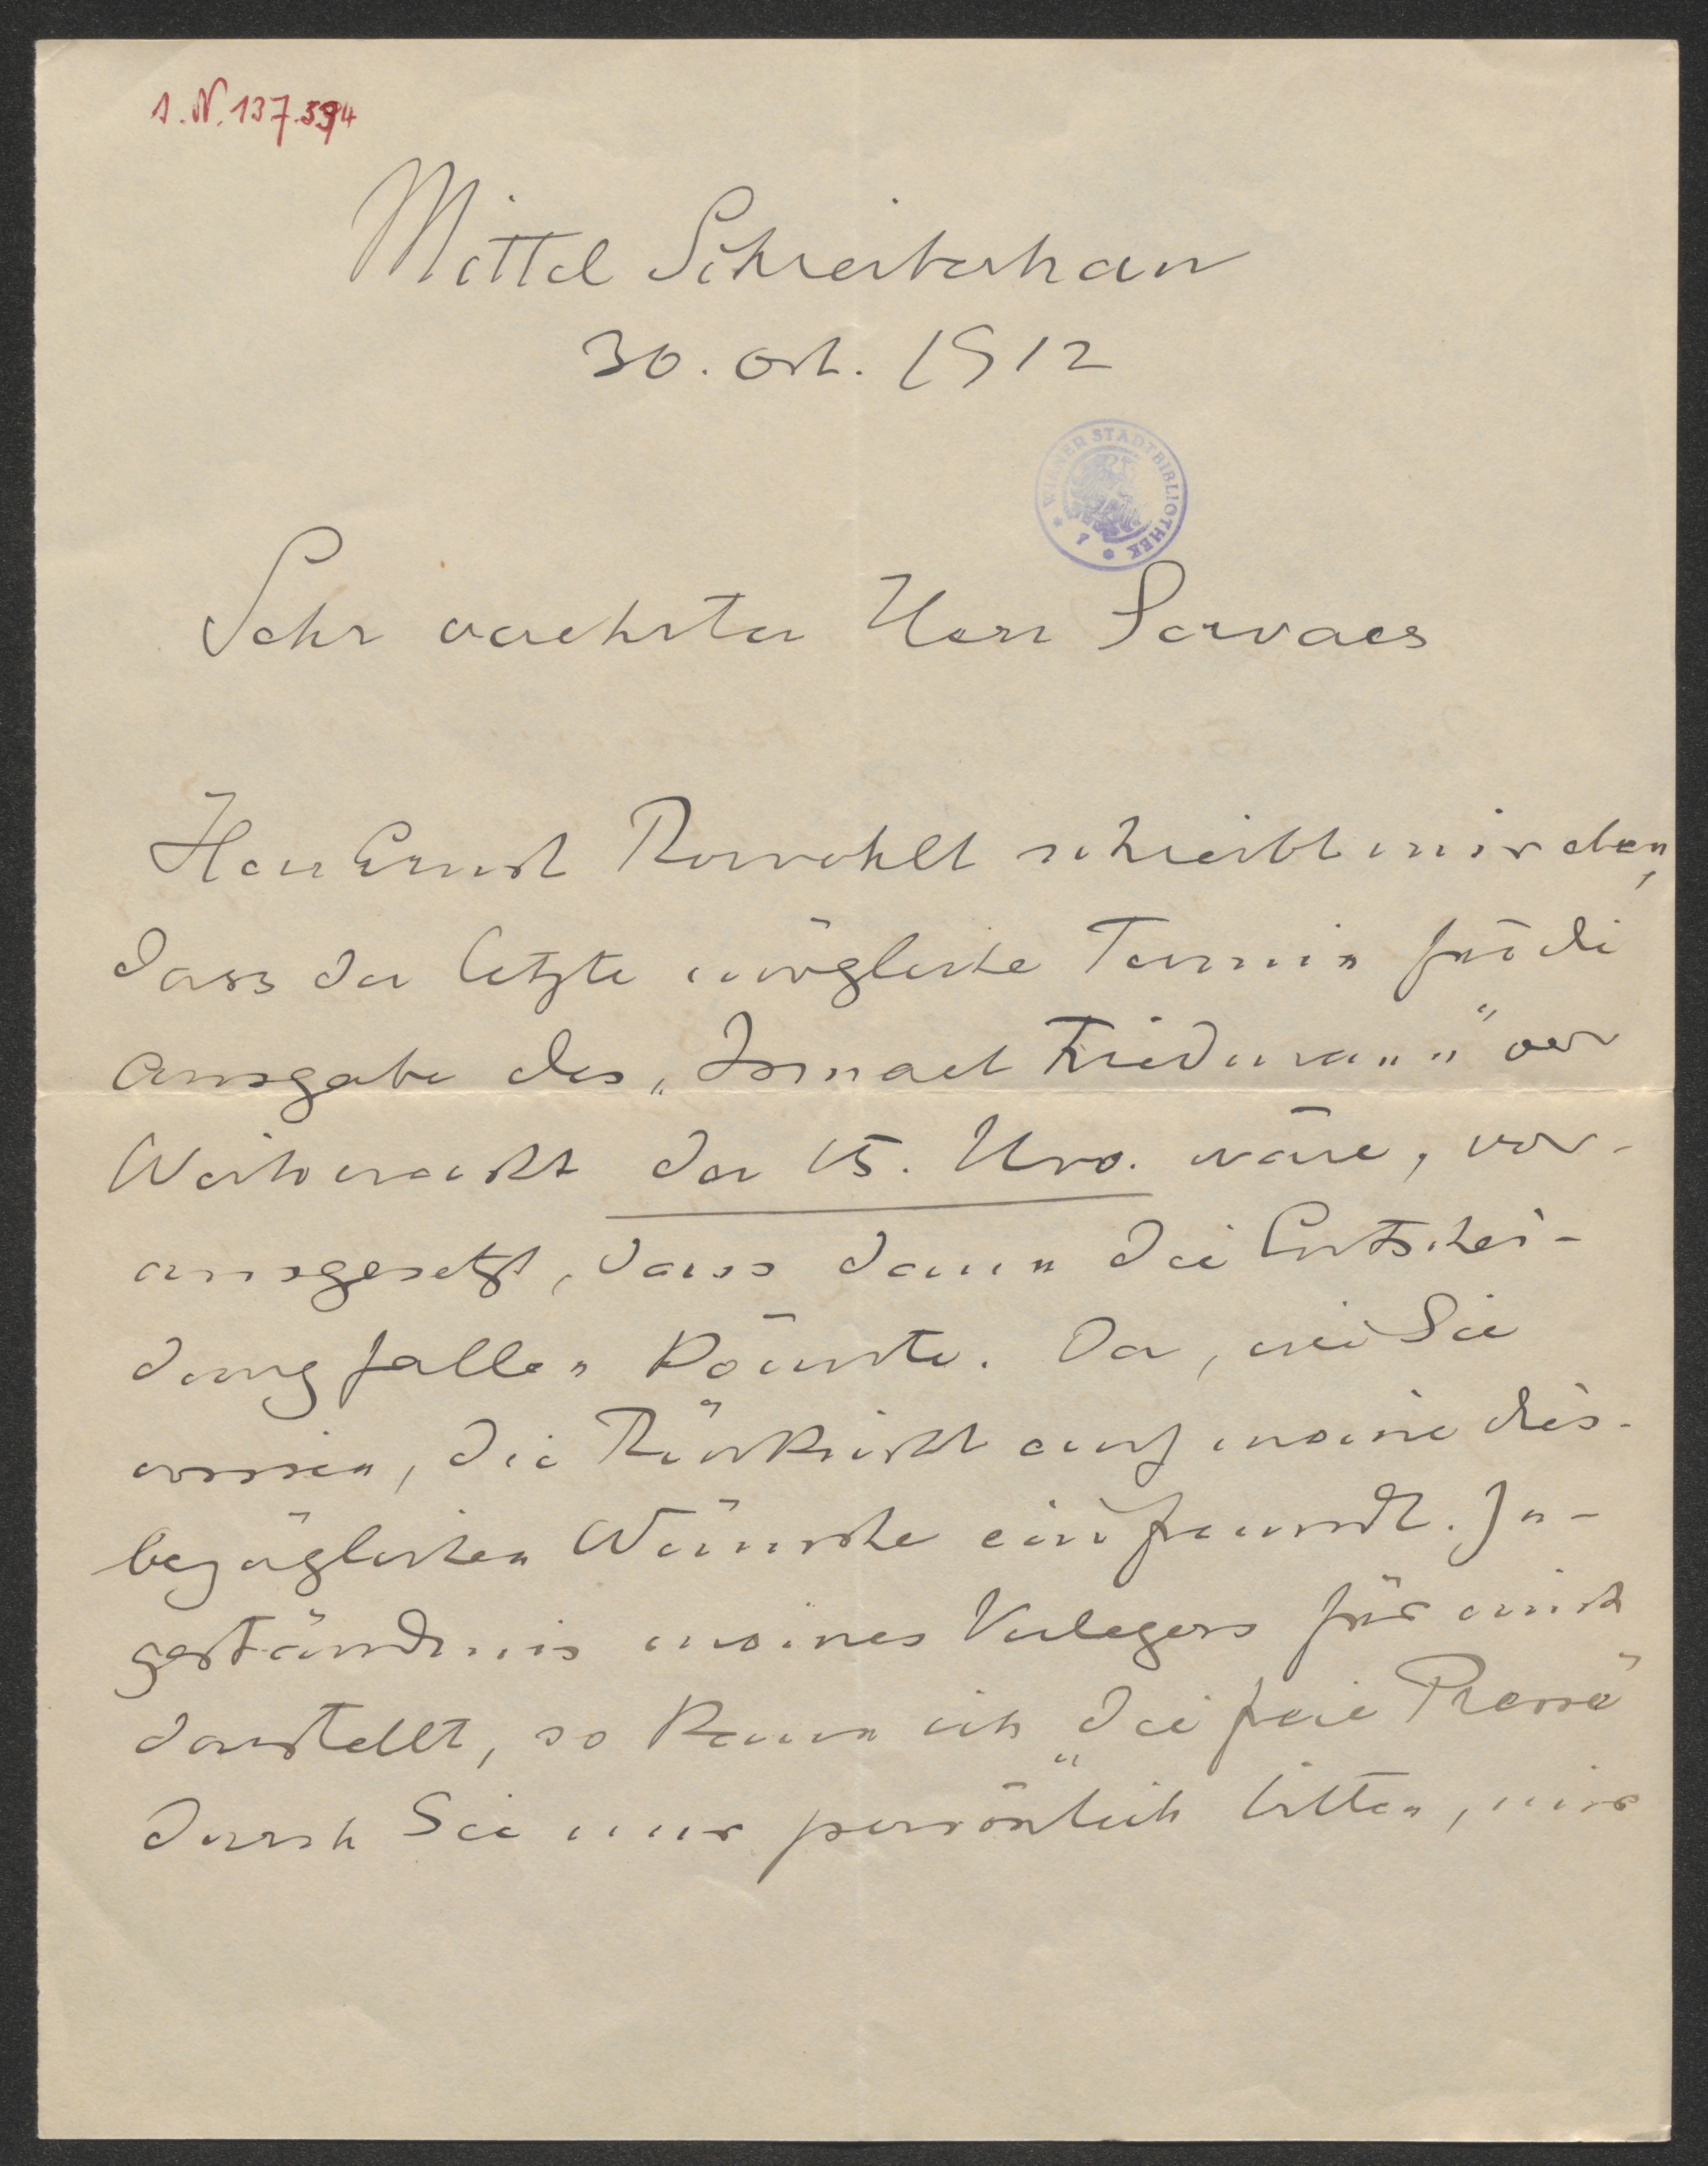 I.N. 137.594
Mittel Schreiberhau
30. Oct. 1912
WIENER STADTBIBLIOTHEK
Sehr verehrter Herr Servaes
Herr Ernst Rowohlt schreibt mir eben,
dass der letzte mögliche Termin für die
Ausgabe des „Ismael Friedmann" vor
Weihnacht der 15. Nov. wäre, vor-
ausgesetzt, dass dann die Entschei-
dung fallen könnte. Da, wie Sie
wissen, die Rücksicht auf meine dies-
bezüglichen Wünsche ein freundl. Zu-
geständnis meines Verlegers für mich
darstellt, so kann ich „die freie Presse"
durch Sie nur persönlich bitten, mir